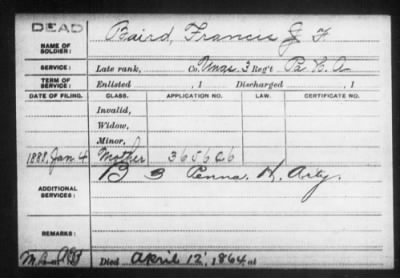 DEAD
NAME OF SOLDIER: Baird, Francis J F
SERVICE: Late rank, Co. Unas. 3 Reg't P. H. A.
TERM OF SERVICE: Enlisted , 1 Discharged , 1
DATE OF FILING. CLASS. APPLICATION NO. LAW. CERTIFICATE NO.
Invalid,
Widow,
Minor,
1888, Jan 4 Mother 365626
ADDITIONAL SERVICES: B 3 Penna. H. Arty.
REMARKS:
Died April 12, 1864 at